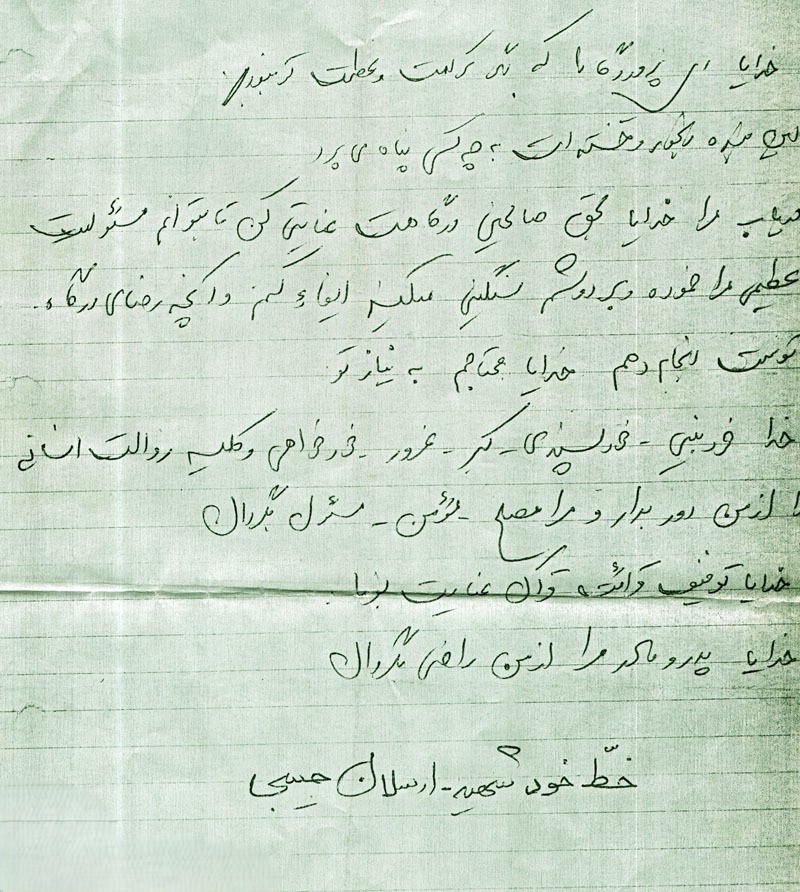 خدایا ای پروردگارا که بتو کرامت و عظمت تو نبود
این بنده رنجور و خسته ات به چه کسی پناه می برد
دریاب مرا خدایا بحق صالحین درگاهت عنایتی کن تا بتوانم مسئولیت
عظیمی مرا خورده و بر دوشم سنگینی میکند ایفاء کنم و آنچه رضای درگاه
توست انجام دهم خدایا محتاجم به نیاز تو
خدا خودبینی - خودپسندی - کبر - غرور - خودخواهی و کلیه رذالت انسانی
را از من دور بدار و مرا مصلح - مؤمن - مسئول بگردان
خدایا توفیق قرائت قرآن عنایت بفرما
خدایا پدر و مادر مرا از من راضی بگردان
خطّ خود شهید - ارسلان حبیبی